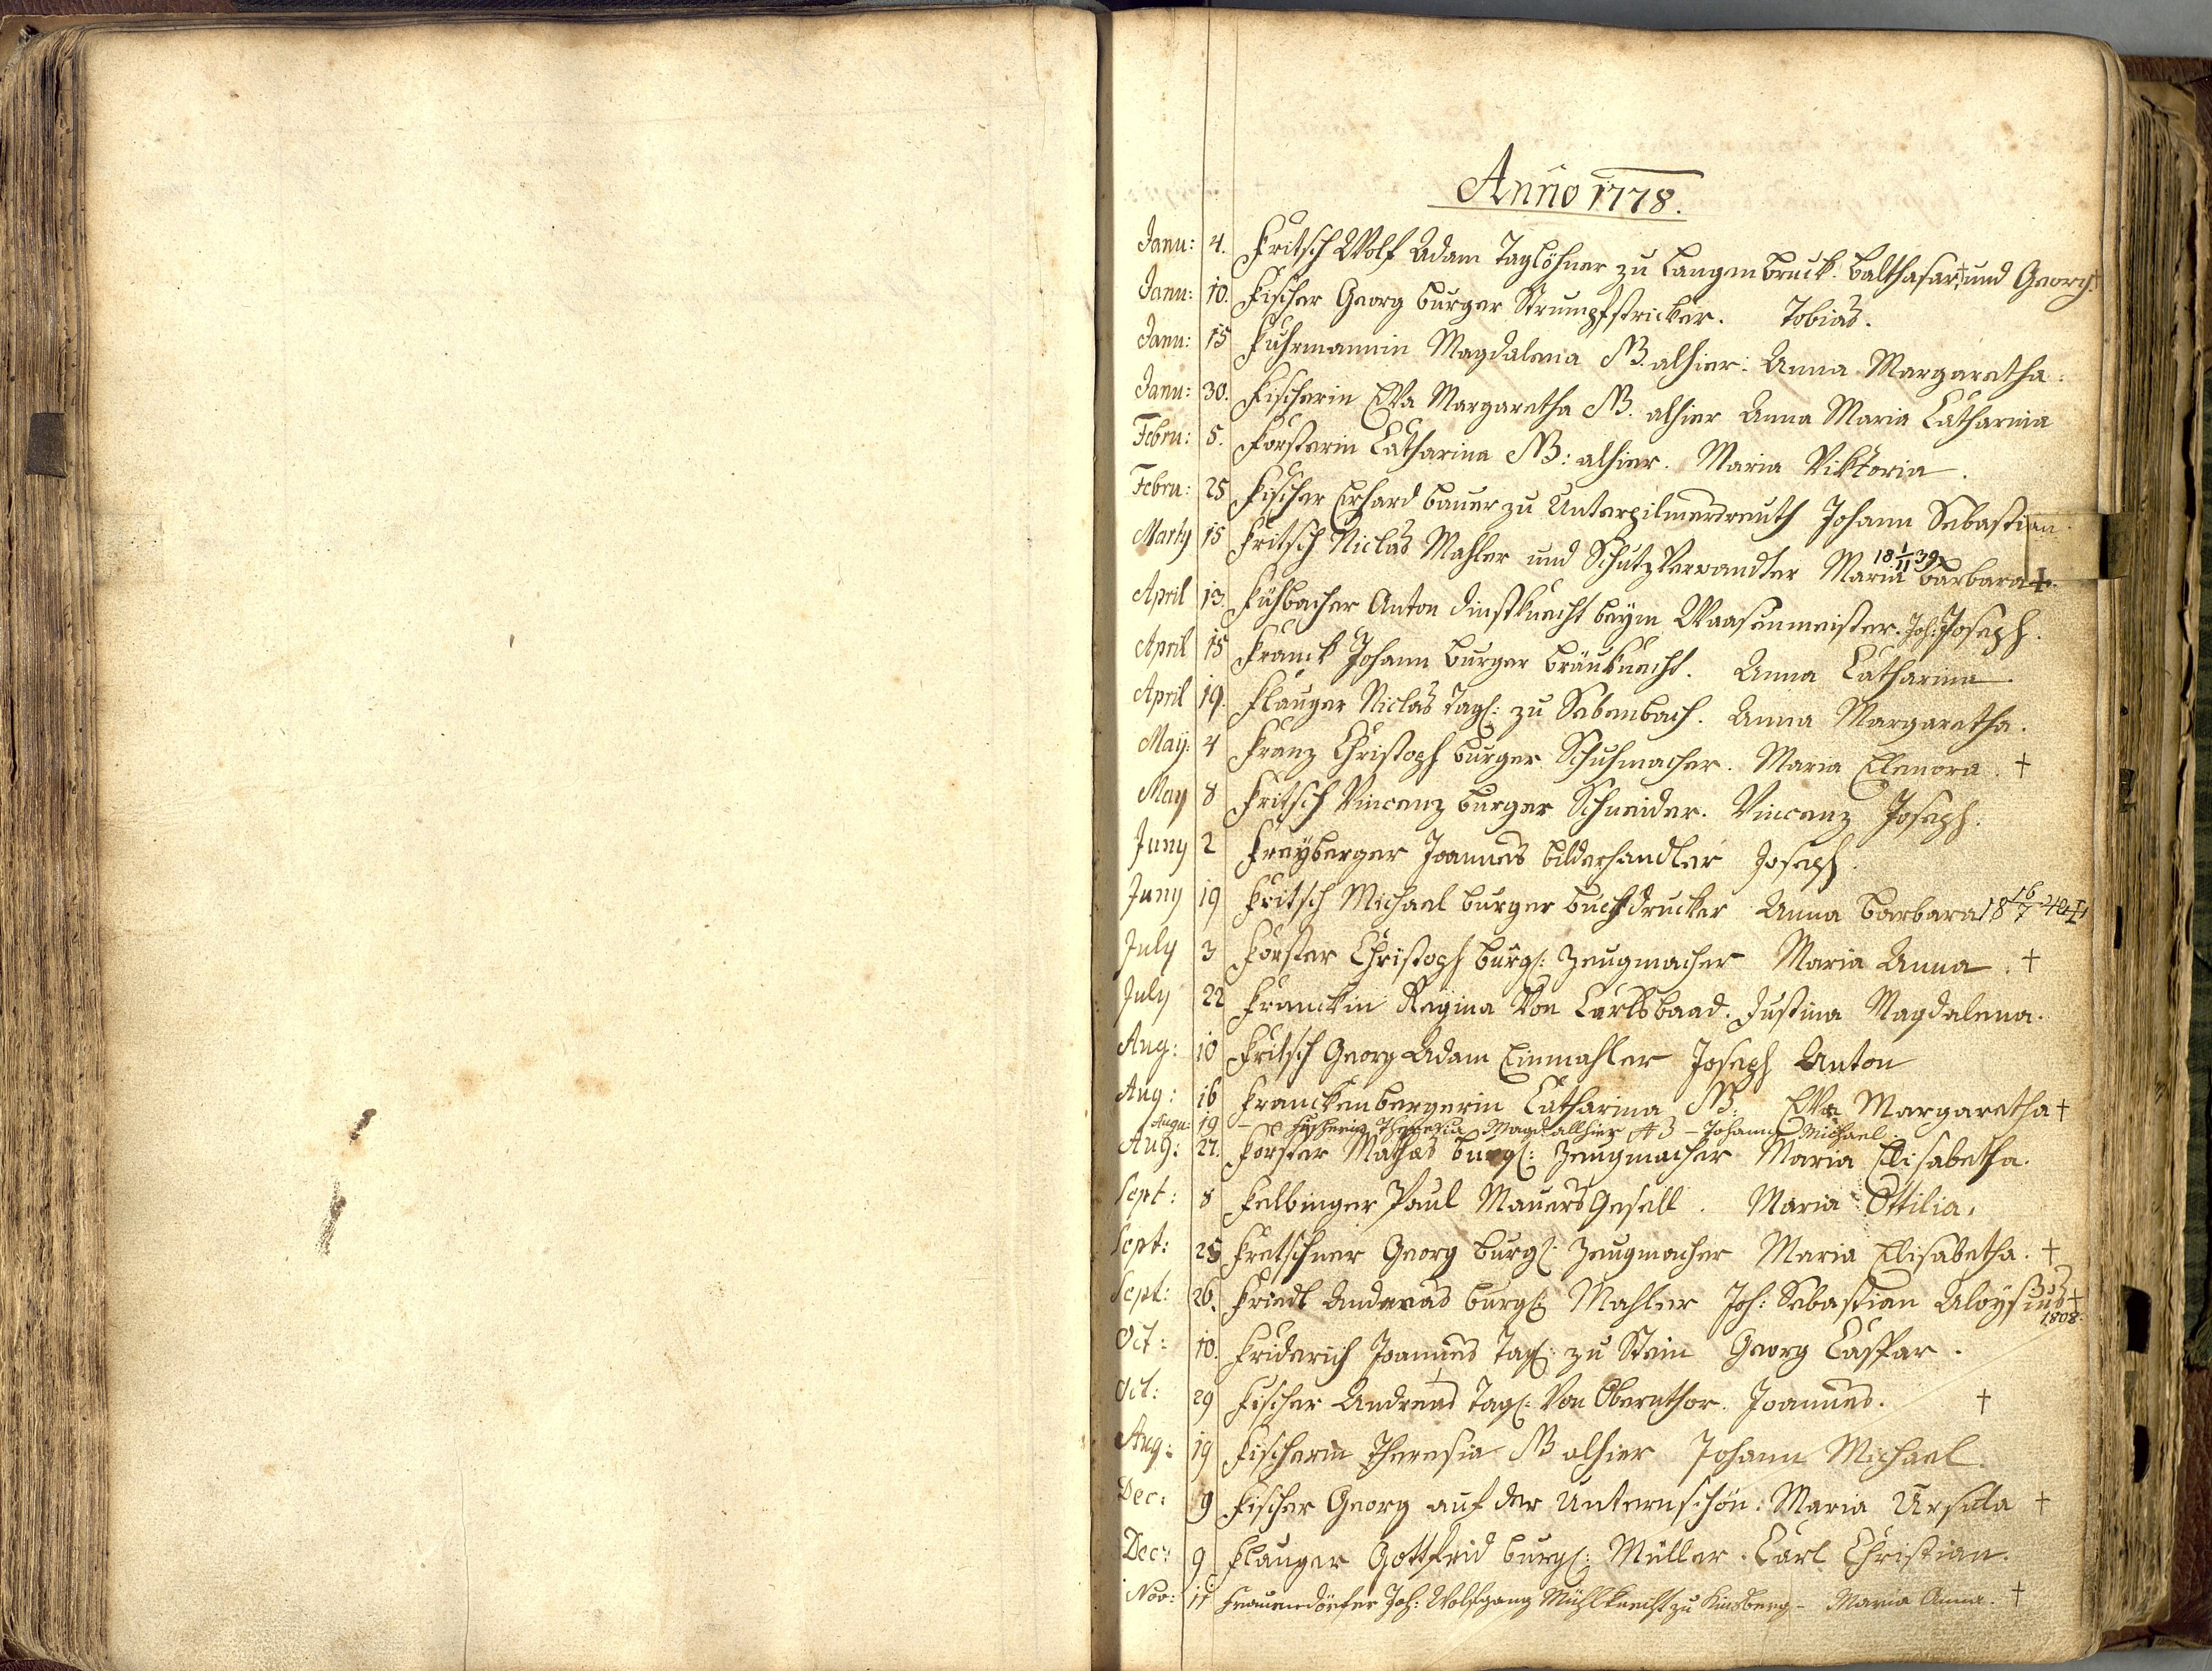 Anno 1778.
Janu: 4. Fritsch Wolf Adam Taglöhner zu Langenbruck. Balthasar † und Georg. †
Janu: 10. Fischer Georg burger Strumpfstricker. Tobias.
Janu: 15 Fuhrmannin Magdalena NB. alhier: Anna Margaretha.
Janu: 30. Fischerin Eva Margaretha NB. alhier Anna Maria Catharina
Febru: 5. Forsterin Catharina NB: alhier. Maria Viktoria.
Febru: 25 Fischer Erhard bauer zu Unterpilmersreuth Johann Sebastian.
Marty 15 Fritsch Niclas Mahler und Schutz Verwandter Maria Barbara †.
18 1/11 39
April 13. Fuhsbacher Anton dinstknecht beym Waasenmeister. Joh: Joseph.
April 15 Franck Johann burger bräuknecht. Anna Catharina.
April 19. Flauger Niclas Tagl: zu Sebenbach. Anna Margaretha.
Maij: 4 Franz Christoph burger Schuhmacher. Maria Elenora. †
May 8 Fritsch Vincenz burger Schneider. Vincenz Joseph.
Juny 2 Freyberger Joannes bilderhandler Joseph.
Juny 19 Fritsch Michael burger buchdrucker Anna Barbara 18 16/7 40 †
July 3 Forster Christoph burgl: Zeugmacher Maria Anna. †
July 22 Franckin Regina Von Carlsbaad. Justina Magdalena.
Aug: 10 Fritsch Georg Adam Einmahler Joseph Anton
Aug: 16 Franckenbergerin Catharina NB: Eva Margaretha †
Augu: 19 – Fischerin Theresia Magd allhier NB – Johann Michael
Aug: 27. Forster Mathæs burgl: Zeugmacher Maria Elisabetha.
Sept: 8 Felbinger Paul Maurers Gesell. Maria Ottilia.
Sept: 25 Fretschner Georg burgl: Zeugmacher Maria Elisabetha. †
Sept: 26. Friedl Andreas burgl: Mahler Joh: Sebastian Aloysius †
1808.
Oct: 10. Friderich Joannes Tagl: zu Stein Georg Caspar.
Oct: 29 Fischer Andreas Tagl: Von Obernthor. Joannes. †
Aug: 19 Fischerin Theresia NB alhier Johann Michael.
Dec: 9 Fischer Georg auf der Unternschön: Maria Ursula †
Dec: 9 Flauger Gottfrid burgl: Müller. Carl Christian.
Nov: 11 Frauendörfer Joh: Wolfgang Mühlknecht zu Kinsberg – Maria Anna. †